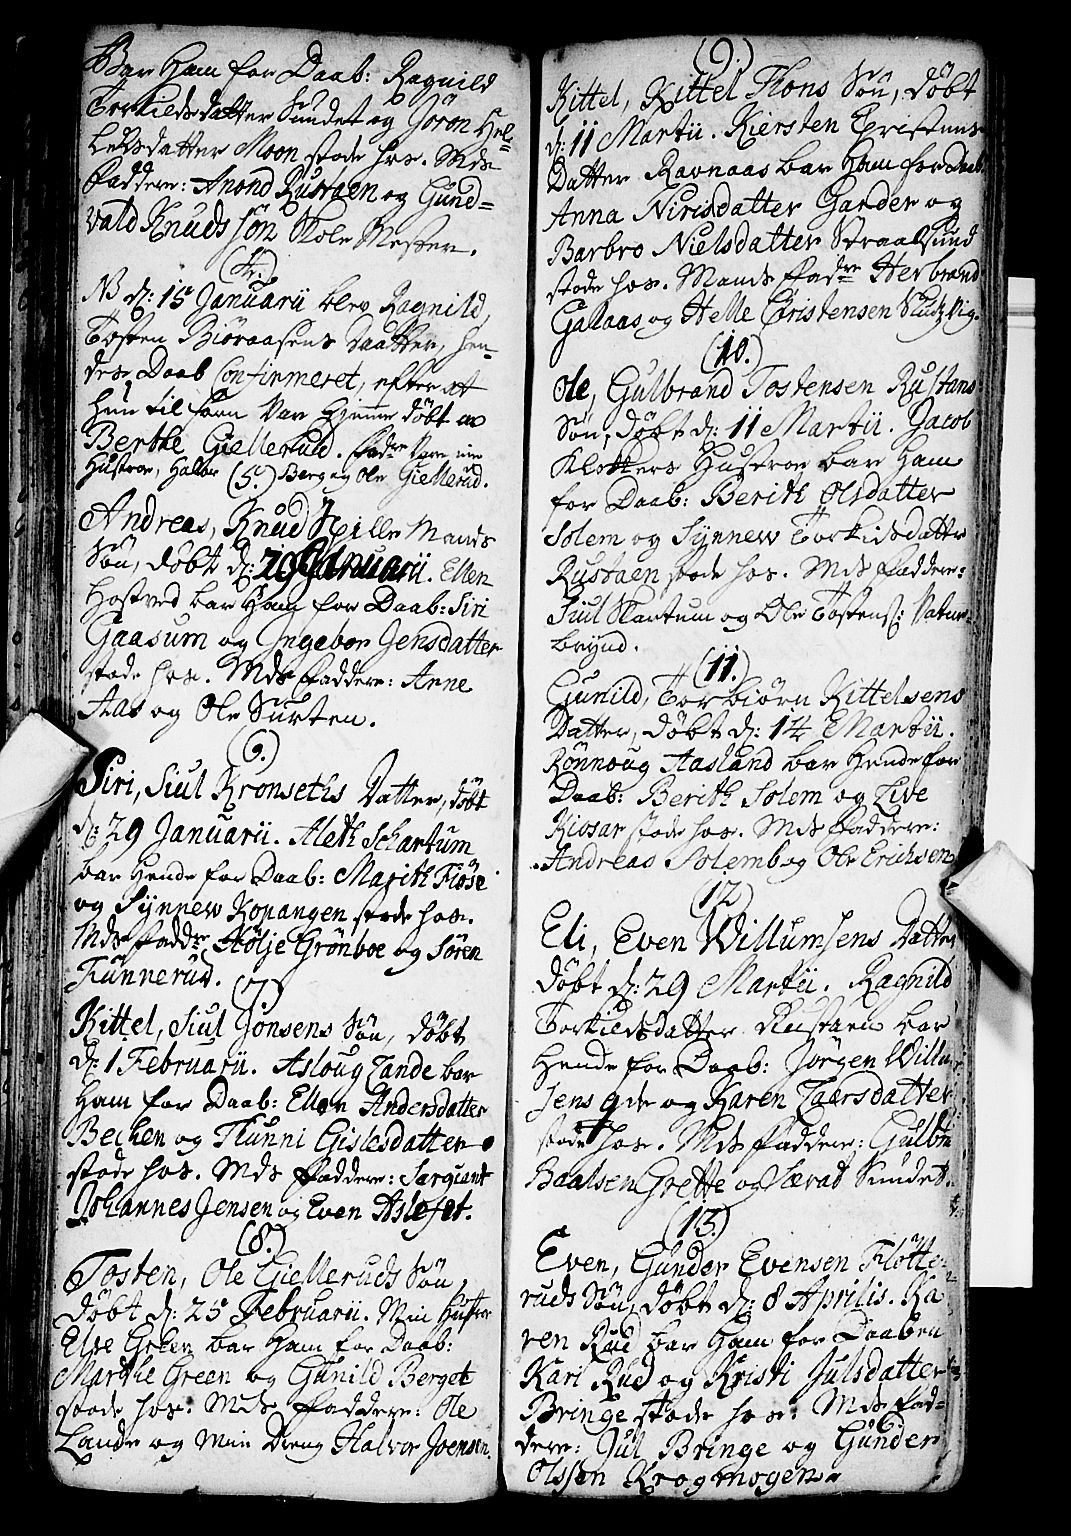 Bar Ham for Daab: Ragnild
Torkildsdatter Sundet og Göron Hel=
Ledsdatter Moon stode hos. Mds
Faddere: Anond Rustaen og Gund=
vald Knuds søn Skole Mester.
(4.)
NB d: 15 Januarii blev Ragnild,
Tosten Biöraasens Daatter, hen=
des Daab Confirmeret, efter at
hun til forn var Hjemme døbt af
Berthe Giellerud. Fadre vare min
Hustroe, Halvor Berg og Ole Giellerud.
(5.)
Andreas, Knud Hille Mands
Søn, døbt d: 20 Januarii. Ellen
Hostved bar Ham for Daab: Siri
Gaasum og Ingebor Jensdatter
stode hos. Mds Faddere: Anne
Aas og Ole Surten.
(6.)
Siri, Siul Kronseths Datter, døbt
d: 29 Januarii. Aleth Schartum
bar Hende for Daab: Marith Flöse
og Synnew Kopangen stode hos.
Mds Faddre Hölje Grönboe og Sören
Funnerud.
(7.)
Kittel, Siul Jonsens Søn, døbt
d: 1 Februarii. Asloug Lande bar
Ham for Daab: Ellen Andersdatter
Becken og Gunni Gislesdatter
stode hos. Mds Faddere: Sargiant
Johannes Jensen og Even Aslefet.
(8.)
Tosten, Ole Gielleruds Søn,
døbt d: 25 Februarii. Min Hustroe
Else Green bar Ham for Daab:
Marthe Green og Gunild Berget
stode hos: Mds Faddere: Ole
Lande og min Dreng Halvor Joensen.
(9.)
Kittel, Kittel Flons Søn, døbt
d: 11 Martii. Kiersten Cristens
Datter Ravnaas bar Ham for Daab
Anna Nirisdatter Garder og
Barbro Nielsdatter Straalsund
stode hos. Mands Fadre Herbrand
Galaas og Helle Christensen Skutzvig.
(10.)
Ole, Gulbrand Tostensen Rustans
Søn, døbt d: 11 Martii. Jacob
Klokkers Hustroe bar Ham
for Daab: Berith Olsdatter
Solem og Synnew Torkildsdatter
Rustaen stode hos. Mds Faddere:
Siul Skartum og Ole Tostens:
brynd.
(11.)
Gunild, Torbiörn Kittelsens
Datter, døbt d: 14 Martii.
Rönnoug Aasland bar Hende for
Daab: Berith Solem og Live
Kiosar stode hos. Mds Faddere:
Andreas Solemb og Ole Erichsen
(12)
Eli, Even Willumsens Datter
døbt d: 29 Martii. Ragnild
Torkildsdatter Rustaen bar
Hende for Daab: Jörgen Willum
sens og Karen Laersdatter
stode hos. Mds Faddere: Gulbra
Baalsen Grette og Værad Sundet.
(13.)
Even, Gunder Evensen Flötte=
ruds Søn, døbt d: 8 Aprilis. Ka
ren Rud bar Ham for Daaben
Kari Rud og Kristi Julsdatter
Bringe stode hos: Mds Fad=
dere: Jul Bringe og Gunder
Olssen Krogmogen.